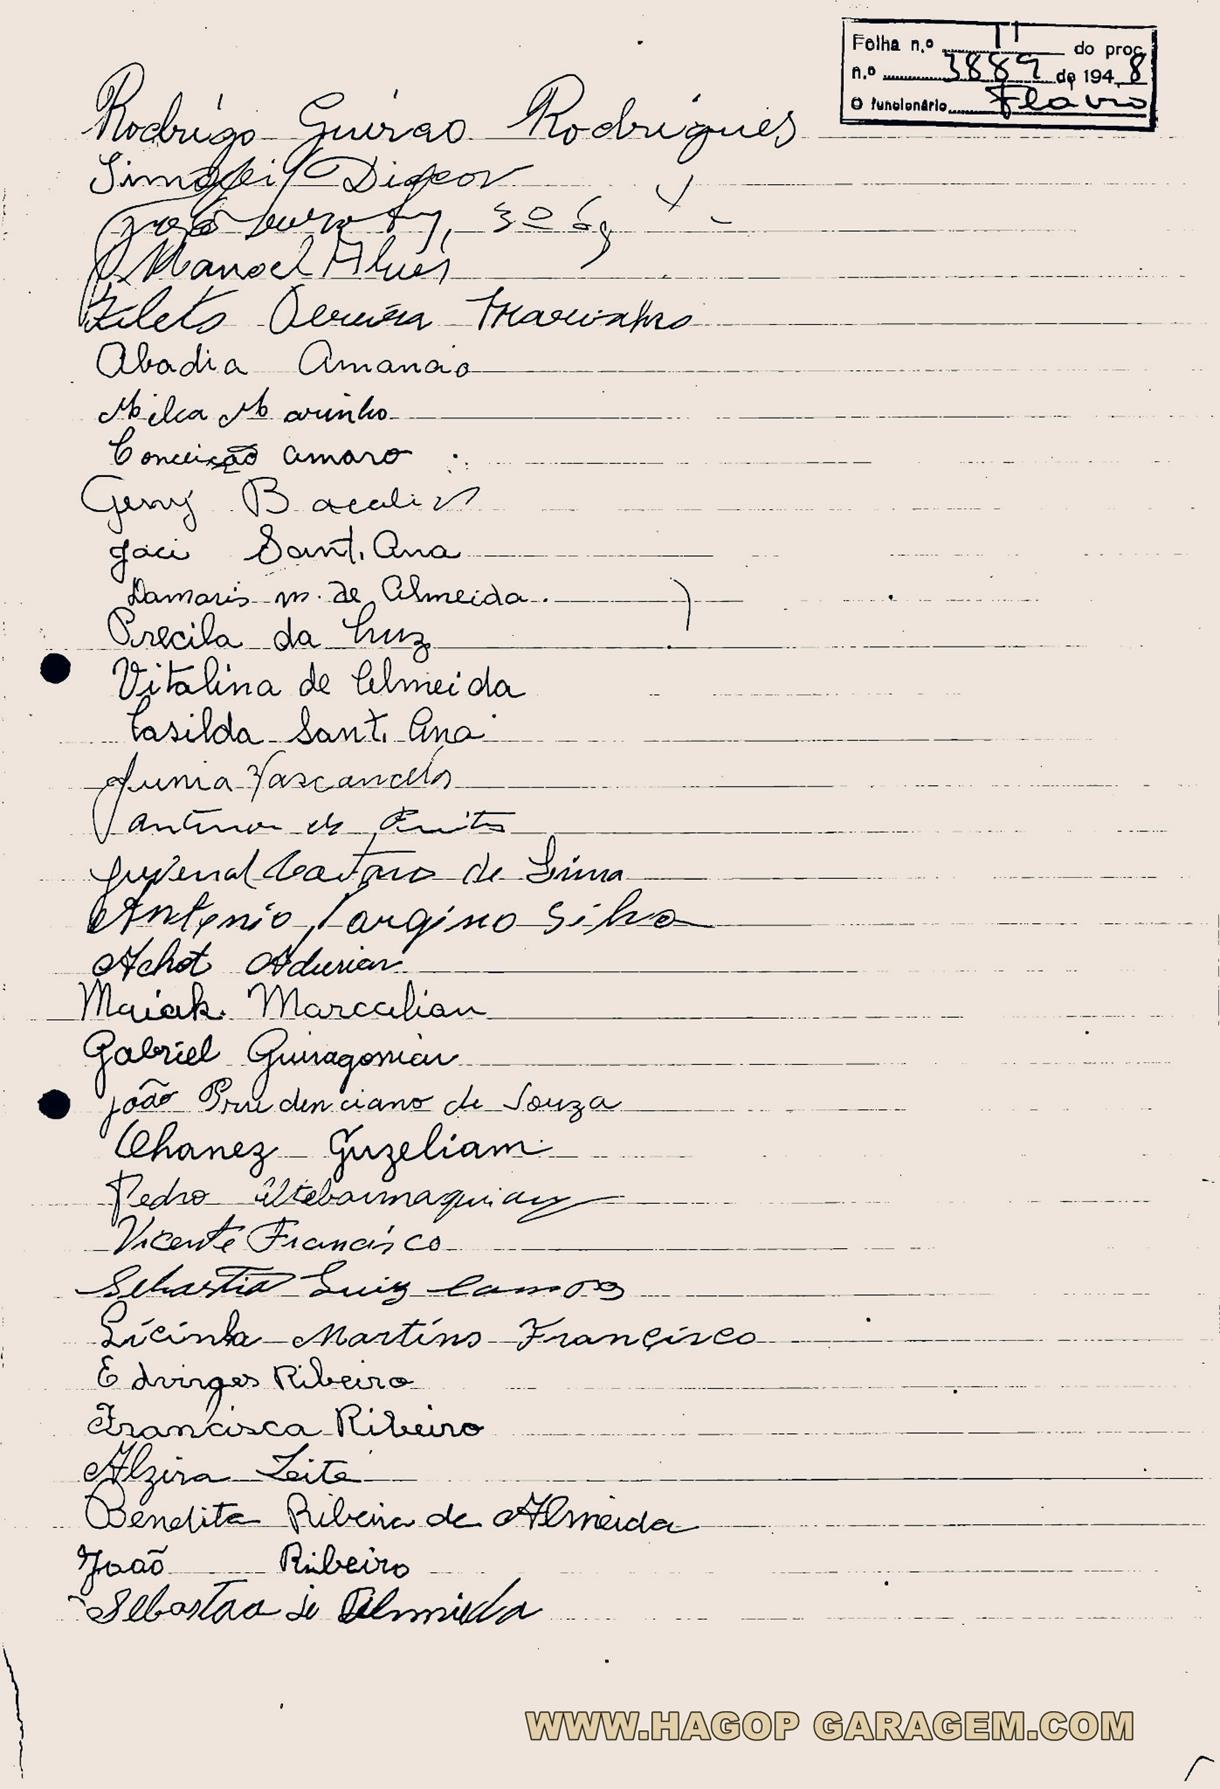 Folha n.º 11 do proc.
n.º 3889 de 1948
O funcionário Flavio
Rodrigo Guirao Rodrigues
Manoel Alves
Fileto Pereira Marinho
Abadia Amancio
Milca Marinho
Conceição amaro
Geny
Jaci Sant. Ana
Damaris m. de Almeida.
Precila da Cruz
Vitalina de Almeida
Casilda Sant. Ana
Junia Vasconcelos
Juvenal Caetano de Lima
Antonio Targino Silva
Achot Adurian
Maiak. Marcalian
Gabriel Guiragonian
João Prudenciano de Souza
Ohanez Guzeliam
Pedro
Vicente Francisco
Sebastião Luiz Camões
Licinha Martins Francisco
Edvirges Ribeiro
Francisca Ribeiro
Alzira Leite
Benedita Ribeira de Almeida
João Ribeiro
Sebastao de Almeida
WWW.HAGOP GARAGEM.COM